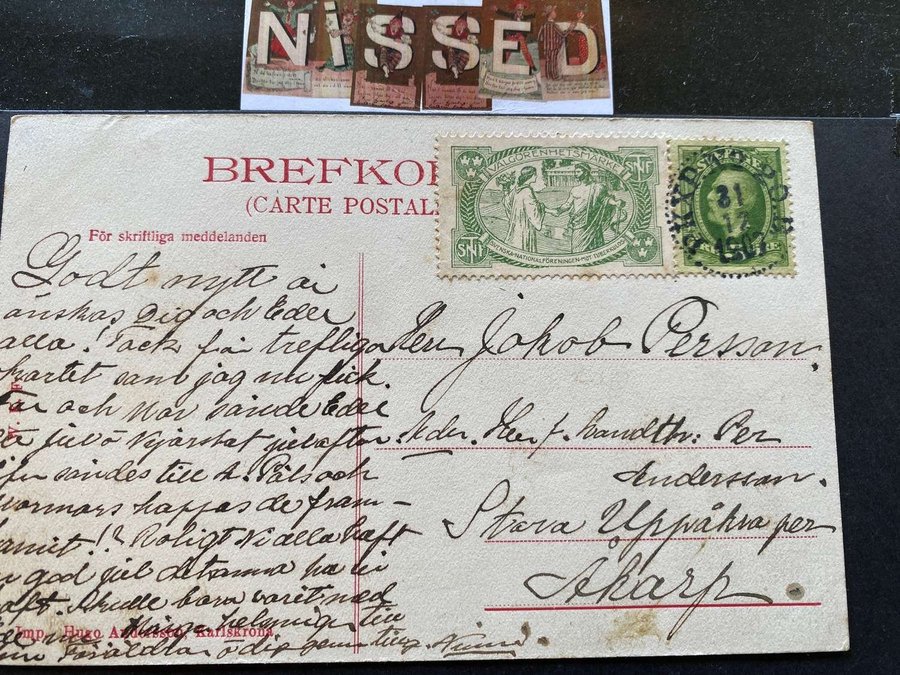 NISSED
BREFKO
(CARTE POSTAL
För skriftliga meddelanden
VÄLGÖRENHETSMÄRKE
SNTF
SVENSKA NATIONALFÖRENINGEN MOT TUBERKULOS
31
12
1907
Godt nytt år
önskas Dig och Eder
alla! Tack för trefliga
kortet som jag nu fick.
Far och Mor sände Eder
julafton
sändes till A. Påls och
Mormors hoppas de fram-
!? Roligt Ni alla haft
en god jul detsamma ha vi
haft. Skulle bara varit med
till
Föräldrar o dig
Herr Jakob Persson.
Adr. Herr f. Landthr: Per
Andersson.
Stora Uppåkra per
Åkarp
Imp. Hugo Andersson, Karlskrona